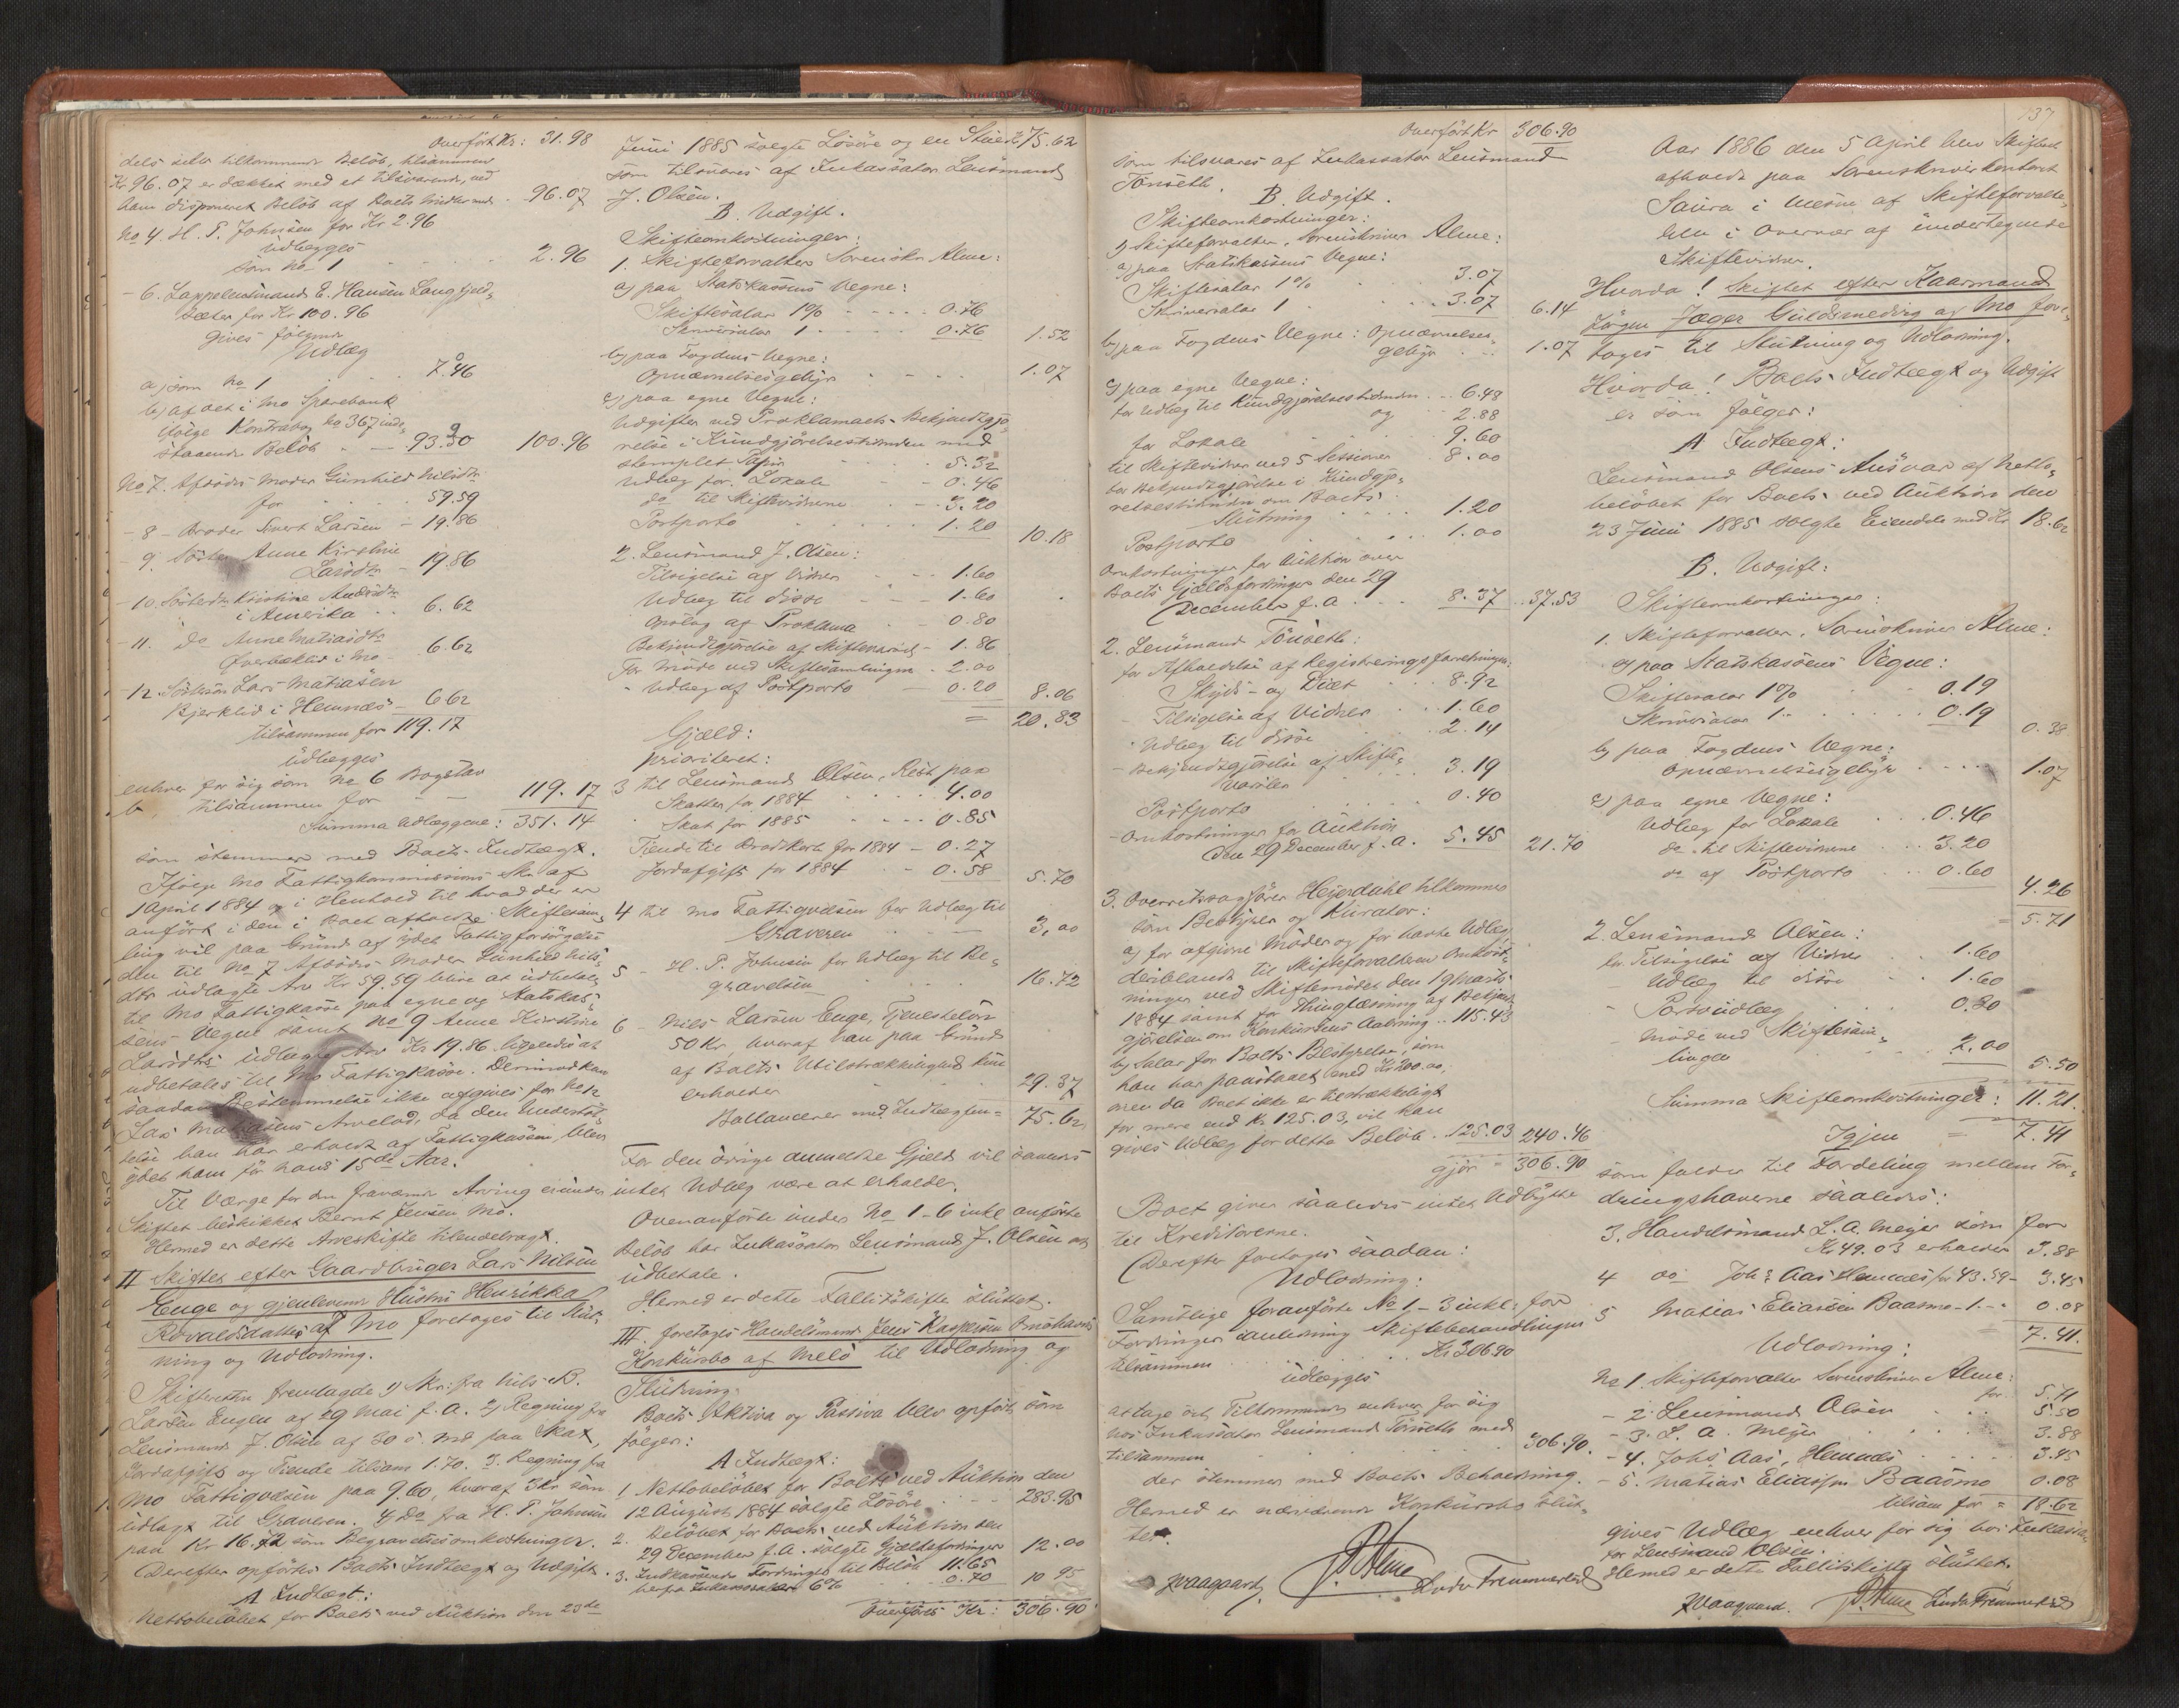 Overført Kr: 31.98
dels selv tilkommende Beløb, tilsammen
Kr 96.07 er dækket med et tilsvarende, ved
ham disponeret Beløb af Boets Midler med . 96.07
No 4. H. P. Johnsen for Kr 2.96
udlægges
som No 1 . . . . . 2.96
- 6. Lappelensmand E. Hansen Langfjeld,
Sæter for Kr 100.96
gives følgende
Udlæg
a) som No 1 . . 7.46
b) af det i Mo Sparebank
ifølge Kontrabog No 367 inde-
staaende Beløb . - 93.50 100.96
No 7. Afdødes Moder Gunhild Nilsdtr
for . . 59.59
- 8 - Broder Sivert Larsen - 19.86
- 9. Søster Anne Kirstine
Larsdtr - 19.86
- 10. Søsterdtr Kristine Andersdtr
i Amerika . . 6.62
- 11. do Anne Matiasdtr
Øverbæklid i Mo - 6.62
- 12. Søstersøn Lars Matiasen
Bjerklid i Hemnæs - 6.62
tilsammen for 119.17
udlægges
enhver for sig som No 6 Bogstav
b, tilsammen for - - 119.17
Summa Udlæggene: 351.14
som stemmer med Boets Indtægt.
Ifølge Mo Fattigkommissions Skr. af
1 April 1884 og i Henhold til hvad der er
anført i den i Boet afholdte Skiftesam-
ling vil paa Grund af ydet Fattigforsørgelse
den til No 7 Afdødes Moder Gunhild Nils-
dtr udlagte Arv Kr 59.59 blive at udbetale
til Mo Fattigkasse paa egne og Statskas-
sens Vegne samt No 9 Anne Kirstine
Larsdtrs udlagte Arv Kr 19.86 ligeledes at
udbetales til Mo Fattigkasse. Derimod kan
saadan Bestemmelse ikke afgives for No 12
Lars Matiasens Arvelod, da den Understøt-
telse han har erholdt af Fattigkassen, blev
ydet ham før hans 15de Aar.
Til Værge for den fraværende Arving er under
Skiftet beskikket Bernt Jensen Mo.
Hermed er dette Arveskifte tilendebragt.
II Skiftet efter Gaardbruger Lars Nilsen
Enge og gjenlevende Hustru Henrikka
Rovaldsdatter af Mo foretoges til Slut-
ning og Udlodning.
Skifteretten fremlagde 1) Skr. fra Nils B.
Larsen Engen af 29 Mai f. A. 2) Regning fra
Lensmand J. Olsen af 30 s. Md paa Skat,
Jordafgift og Tiende tilsam 1.70. 3. Regning fra
Mo Fattigvæsen paa 9.60, hvoraf 3 Kr som
udlagt til Graveren. 4) Do fra H. P. Johnsen
paa Kr 16.72 som Begravelsesomkostninger.
Derefter opførtes Boets Indtægt og Udgift.
A Indtægt:
Nettobeløbet for Boets ved Auktion den 23de
Juni 1885 solgte Løsøre og en Stue Kr 75.62
som tilsvares af Inkassator Lensmand
J. Olsen.
B. Udgift.
Skifteomkostninger:
1. Skifteforvalter Sorenskr. Alme:
a) paa Statskassens Vegne:
Skiftesalar 1% . . . . 0.76
Skriversalar 1 - . . . 0.76 1.52
b) paa Fogdens Vegne:
Opnævnelsesgebyr . . . . 1.07
c) paa egne Vegne:
Udgifter ved Proklamaets Bekjendtgjø-
relse i Kundgjørelsestidenden med
stemplet Papir . . . 5.32
Udlæg for Lokale . - - 0.46
do til Skiftevidnerne . - 3.20
Postporto . . . . . 1.20 10.18
2. Lensmand J. Olsen:
Tilsigelse af Vidner . - - 1.60
Udlæg til disse - - 1.60
Opslag af Proklama . - 0.80
Bekjendtgjørelse af Skiftevarsel - 1.86
For Møde ved Skiftesamlingen . 2.00
- Udlæg af Postporto - 0.20 8.06
= 20.83
Gjæld:
prioriteret:
3 til Lensmand Olsen, Rest paa
Skatten for 1884 . . . . 4.00
" Skat for 1885 . . . . 0.85
Tiende til Brodtkorb for 1884 - 0.27
Jordafgift for 1884 . - 0.58 5.70
4 til Mo Fattigvæsen for Udlæg til
Graveren . . - 3,00
5 - H. P. Johnsen for Udlæg til Be-
gravelsen . . . 16.72
6 - Nils Larsen Enge, Tjenesteløn
50 Kr, hvoraf han paa Grund
af Boets Utilstrækkelighed kun
erholder . . . 29.37
Ballancerer med Indtægten = 75.62
For den øvrige anmeldte Gjæld vil saaledes
intet Udlæg være at erholde.
Ovenanførte under No 1-6 inkl anførte
Beløb har Inkassator Lensmand J. Olsen at
udbetale.
Hermed er dette Fallitskifte sluttet.
III. foretoges Handelsmand Jens Kaspersen
Konkursbo af Melø til Udlodning og
Slutning.
Boets Aktiva og Passiva blev opført som
følger:
A Indtægt:
1. Nettobeløbet for Boets ved Auktion den
12 August 1884 solgte Løsøre . - - 283.95
2. Beløbet for Boets ved Auktion den
29 December f. A. solgte Gjældsfordringer 12.00
3. Indkasserede Fordringer til Beløb 11.65
herfra Inkassosalær 6% 0.70 10.95
Overføres Kr: 306.90
Overført Kr 306.90
som tilsvares af Inkassator Lensmand
Tønseth.
B. Udgift.
Skifteomkostninger:
1) Skifteforvalter, Sorenskriver Alme:
a) paa Statskassens Vegne:
Skiftesalar 1% . . 3.07
Skriversalar 1 . . . 3.07 6.14
b) paa Fogdens Vegne: Opnævnelses-
gebyr . . . 1.07
c) paa egne Vegne:
for Udlæg til Kundgjørelsestidenden . . 6.49
og 2.88
for Lokale . . . 9.60
til Skiftevidner ved 5 Sessioner . 8.00
for Bekjendtgjørelse i Kundgjø-
relsestidenden om Boets
Slutning . . . . 1.20
Postporto . . . . 1.00
Omkostninger for Auktion over
Boets Gjældsfordringer den 29
December f. A. . . 8.37 . 37.53
2. Lensmand Tönseth:
for Afholdelse af Registreringsforretningen:
Skyds- og Diæt . . . 8.92
- Tilsigelse af Vidner . . 1.60
- Udlæg til disse . . . 2.14
- Bekjendtgjørelse af Skifte-
varsler . . 3.19
Postporto . . . . 0.40
- Omkostninger for Auktion
den 29 December f. A. 5.45 21.70
3. Overretssagfører Heyerdahl tilkommer
som Bestyrer og Kurator:
a) for afgivne Møder og for havte Udlæg
deriblandt til Skifteforvalteren Omkost-
ninger ved Skiftemødet den 19 Marts
1884 samt for Thinglæsning af Bekjendt-
gjørelsen om Konkursens Aabning . . 115.43
b) Salar for Boets Bestyrelse, som
han har paastaaet med Kr 200.00,
men da Boet ikke er tilstrækkeligt
for mere end Kr 125.03, vil han
gives Udlæg for dette Beløb . 125.03 240.46
gjør = 306.90
Boet giver saaledes intet Udbytte
til Kreditorerne.
Derefter foretoges saadan:
Udlodning:
Samtlige foranførte No 1-3 inkl: for
Fordringer i Anledning Skiftebehandlingen
tilsammen . . . . . Kr 306.90
udlægges
at tage sit Tilkommende enhver for sig
hos Inkassator Lensmand Tönseth med
tilsammen . . . . . 306.90.
der stemmer med Boets Beholdning.
Hermed er nærværende Konkursbo slut-
tet.
J Waagaard. Alme Luder Fremmerlid
137
Aar 1886 den 5 April blev Skifteret
afholdt paa Sorenskriverkontoret
Saura i Næsne af Skifteforvalte-
ren i Overvær af undertegnede
Skiftevidner.
Hvorda! Skiftet efter Kaarmand
Jørgen Jæger Guldsmedvig af Mo fore-
toges til Slutning og Udlodning.
Hvorda! Boets Indtægt og Udgift
er som følger:
A Indtægt:
Lensmand Olsens Ansvar af Netto-
beløbet for Boets ved Auktion den
23 Juni 1885 solgte Eiendele med Kr 18.62
B. Udgift:
Skifteomkostninger:
1. Skifteforvalter, Sorenskriver Alme:
a) paa Statskassens Vegne:
Skiftesalar 1% . . 0.19
Skriversalar 1 . . . . . 0.19 0.38
b) paa Fogdens Vegne:
Opnævnelsesgebyr . . . . 1.07
c) paa egne Vegne:
Udlæg for Lokale . . . 0.46
do til Skiftevidnerne . . 3.20
do af Postporto . . 0.60 4.26
= 5.71
2. Lensmand Olsen:
for Tilsigelse af Vidner . . 1.60
- Udlæg til disse . . 1.60
- Portoudlæg . . 0.30
- Møde ved Skiftesam-
lingen . . . 2.00 5.50
Summa Skifteomkostninger: 11.21.
Igjen = 7.41
som falder til Fordeling mellem For-
dringshaverne saaledes:
3. Handelsmand L. A. Meyer som for
Kr 49.03 erholder 3.88
4 do Johs Aas Hemnæs for 43.59 - 3.45
5 Matias Eliassen Baasmo - 1. - . 0.08
7.41.
Udlodning:
No 1. Skifteforvalter Sorenskriver Alme:
for. 5.71
- 2. Lensmand Olsen . . . 5.50
- 3. L. A. Meyer . . . . . 3.88
- 4. Johs Aas, Hemnæs . . . . 3.45
- 5. Matias Eliassen Baasmo 0.08
tilsam for = 18.62
gives Udlæg enhver for sig hos Inkassa-
tor Lensmand Olsen.
Hermed er dette Fallitskifte sluttet.
J Waagaard. Alme Luder Fremmerlid